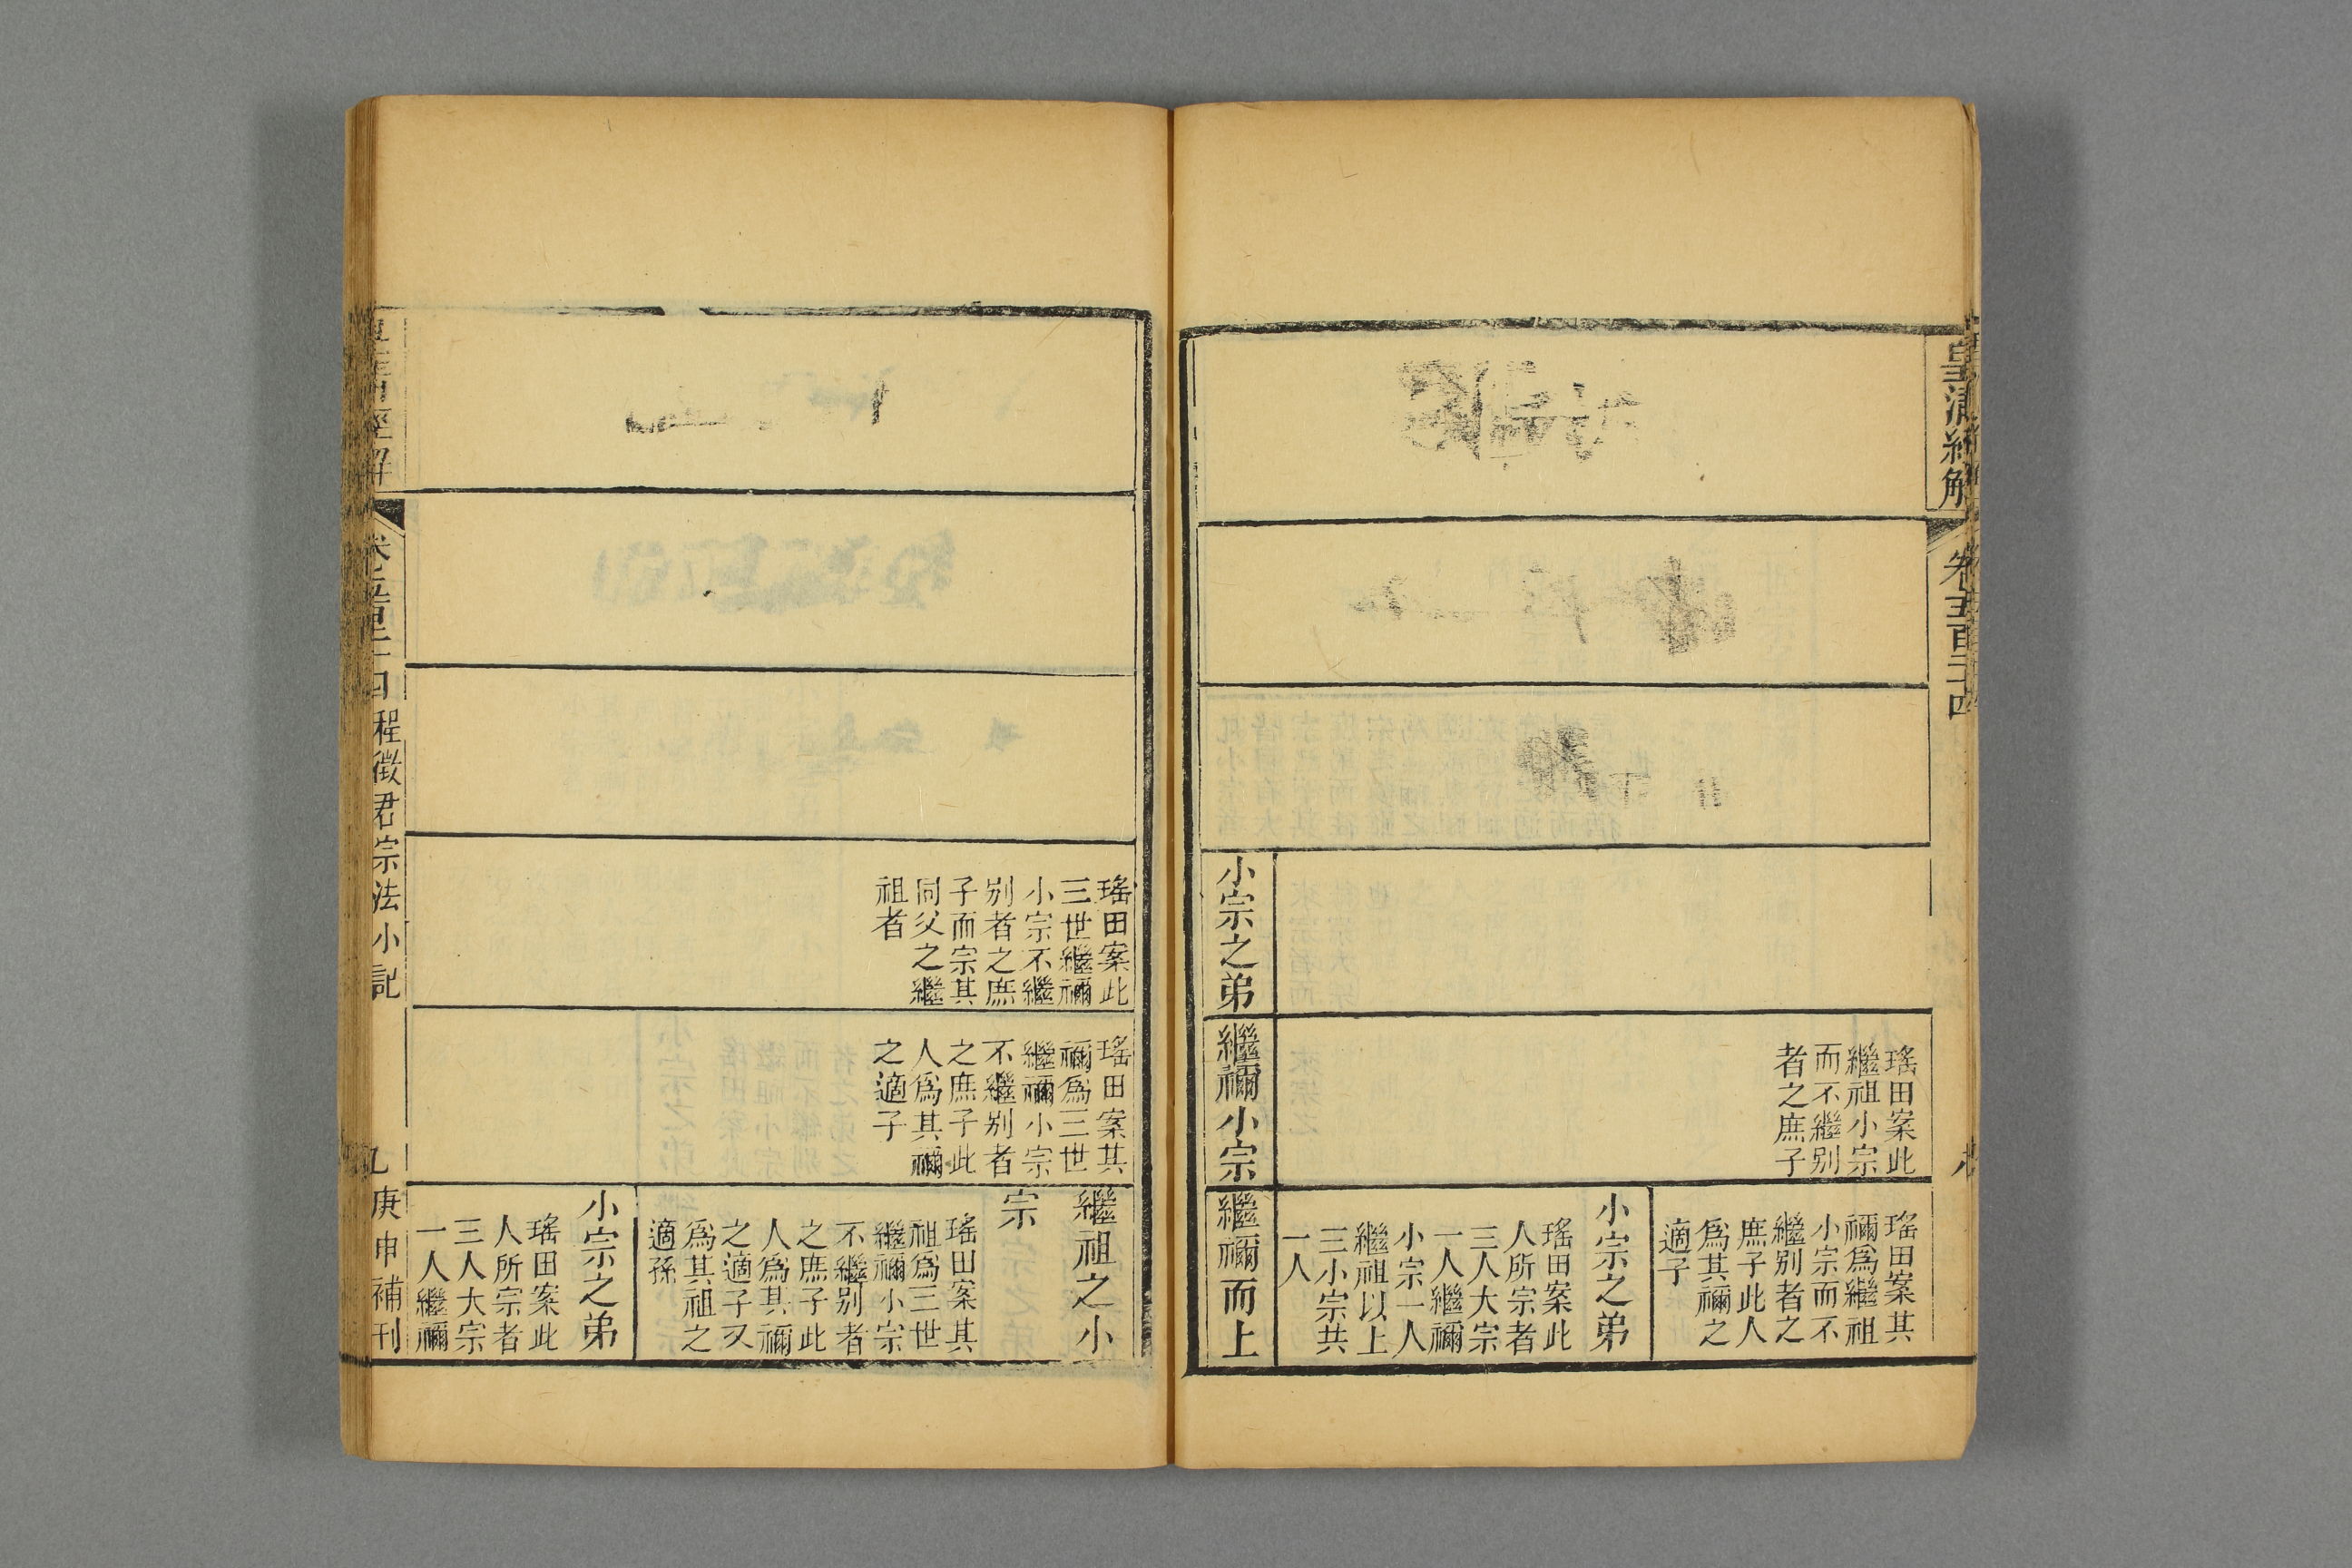 皇清經解
卷五百二十四
瑤田案此
繼祖小宗
而不繼别
者之庶子
瑤田案其
禰爲繼祖
小宗而不
繼别者之
庶子此人
爲其禰之
適子
小宗之弟
瑤田案此
人所宗者
三人大宗
一人繼禰
小宗一人
繼祖以上
三小宗共
一人
小宗之弟
繼禰小宗
繼禰而上
瑤田案此
三世繼禰
小宗不繼
别者之庶
子而宗其
同父之繼
祖者
瑤田案其
禰爲三世
繼禰小宗
不繼别者
之庶子此
人爲其禰
之適子
繼祖之小
宗
瑤田案其
祖爲三世
繼禰小宗
不繼别者
之庶子此
人爲其禰
之適子又
爲其祖之
適孫
小宗之弟
瑤田案此
人所宗者
三人大宗
一人繼禰
皇清經解
卷五百二十四
程徵君宗法小記
庚申補刊